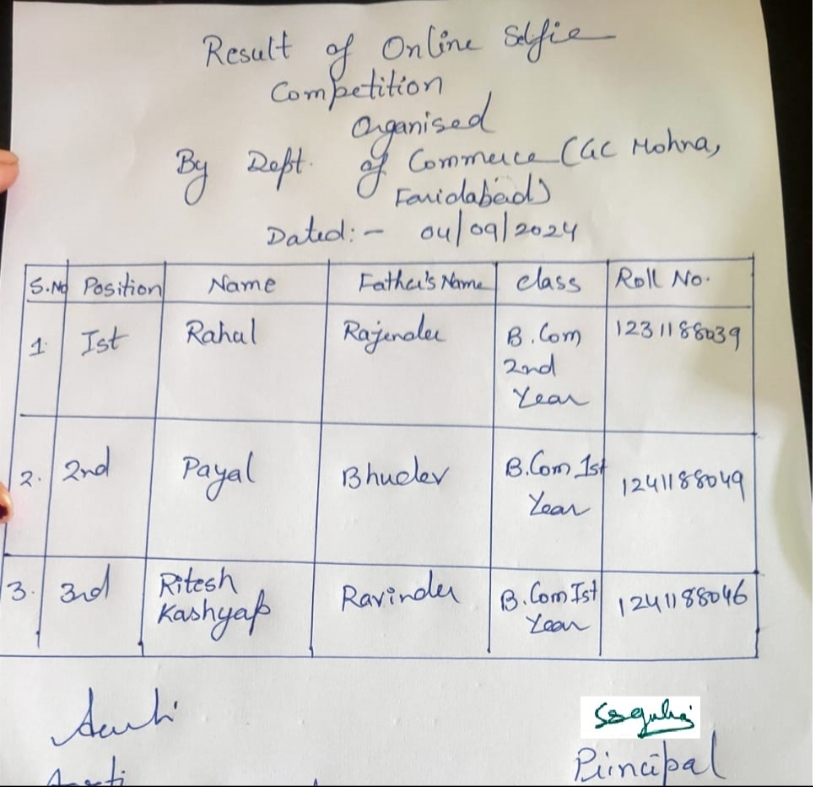 Result of Online Selfie
Competition
Organised
By Deptt. of Commerce (GC Mohna,
Faridabad)
Dated:- 04/09/2024
S.No Position Name Father's Name class Roll No.
1 Ist Rahul Rajender B.Com 2nd Year 1231188039
2. 2nd Payal Bhudev B.Com 1st Year 1241188049
3. 3rd Ritesh Kashyap Ravinder B.Com Ist Year 1241188046
Aarti
Principal